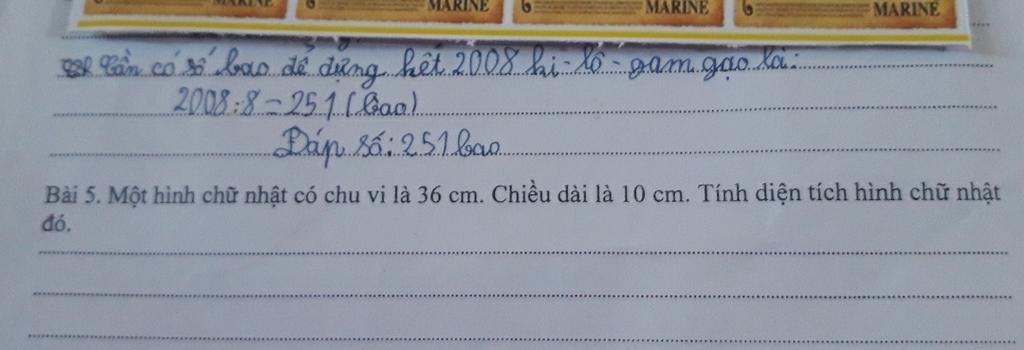 MARINE MARINE MARINE MARINE
Cần có số bao để đựng hết 2008 ki-lô-gam gạo là:
2008:8=251 (bao)
Đáp số: 251 bao
Bài 5. Một hình chữ nhật có chu vi là 36 cm. Chiều dài là 10 cm. Tính diện tích hình chữ nhật
đó.